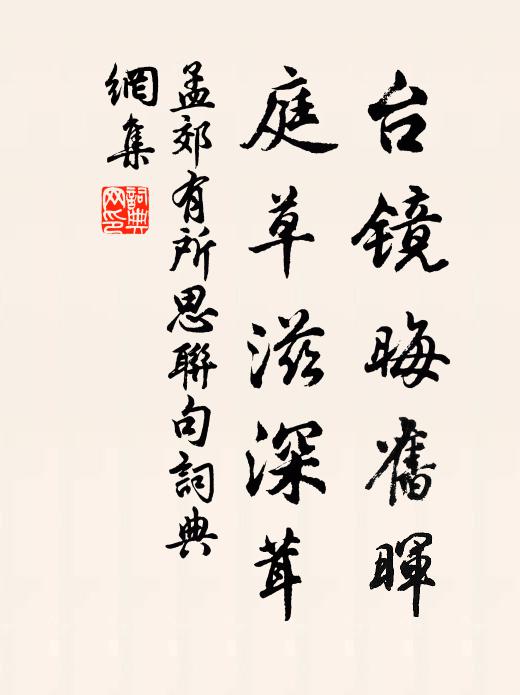 台镜晦舊暉
庭草滋深茸
孟郊有所思聯句詞典
網集
詞典网印